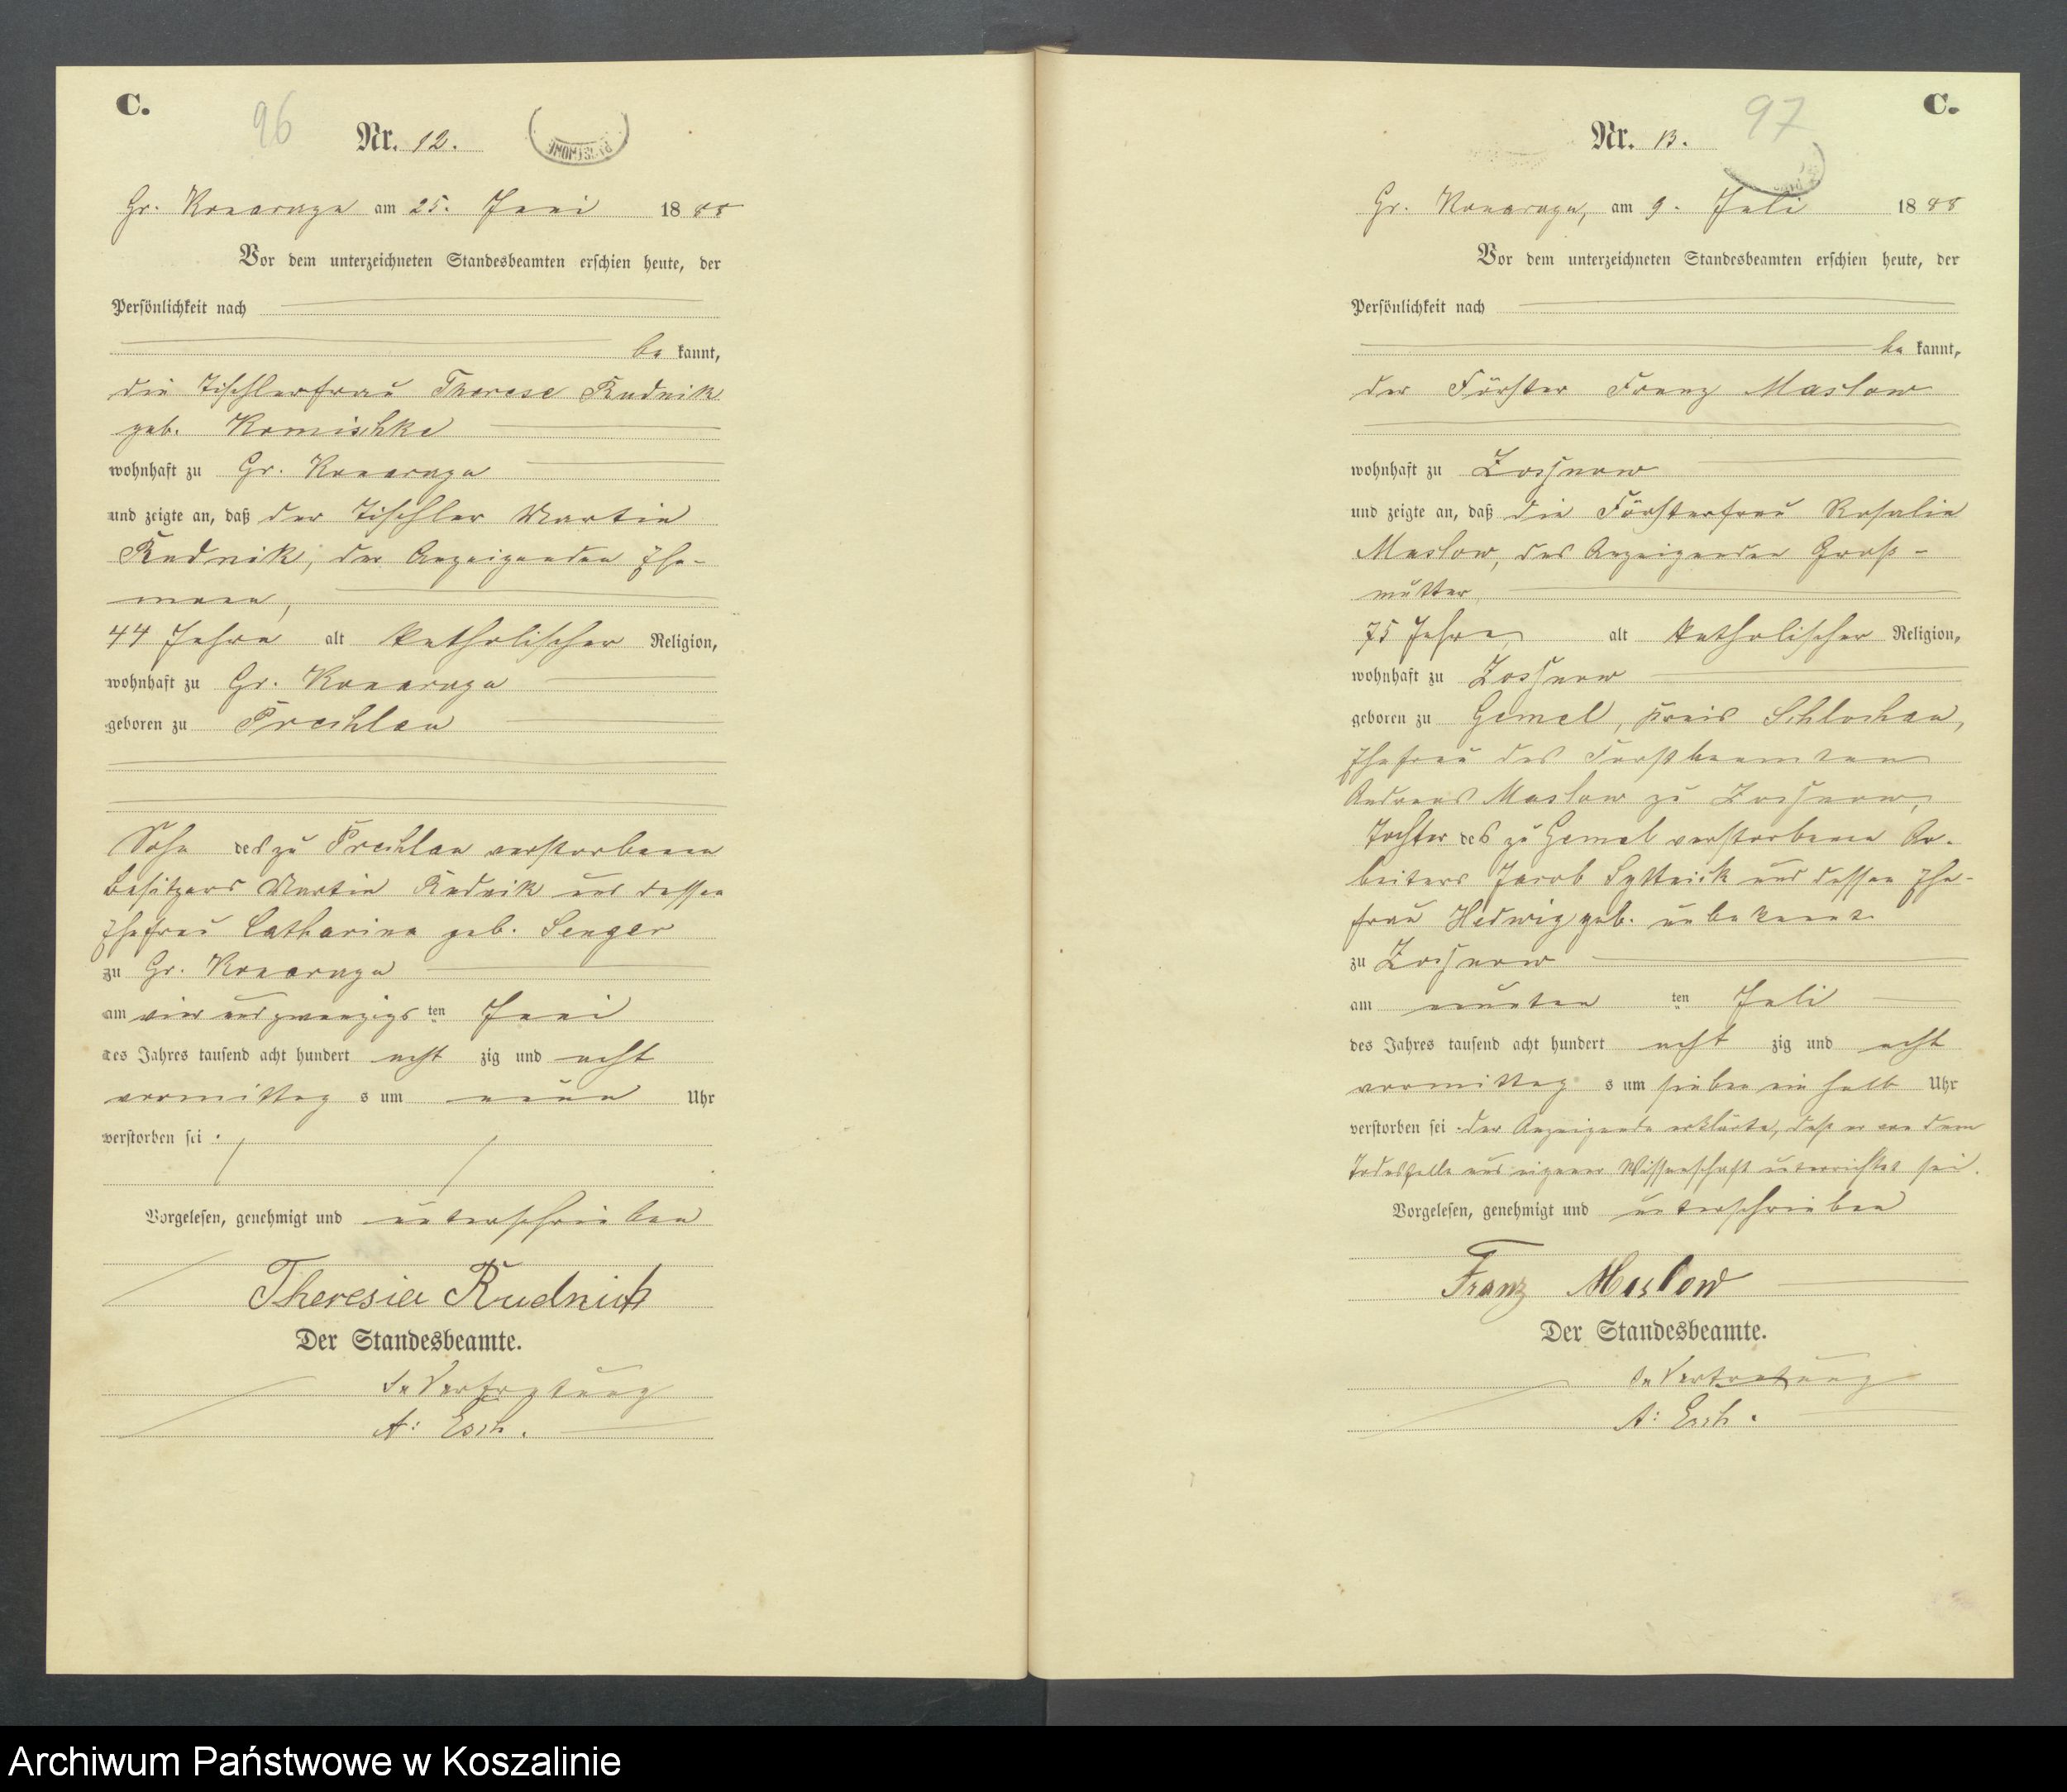 C.
96
Nr. 12.
Gr. Konarczyn am 25. Juni 1888
Vor dem unterzeichneten Standesbeamten erschien heute, der
Persönlichkeit nach
be kannt,
die Tischlerfrau Therese Rudnik
geb. Komischke
wohnhaft zu Gr. Konarczyn
und zeigte an, daß der Tischler Martin
Rudnik, der Anzeigenden Ehe-
mann,
44 Jahre alt katholischer Religion,
wohnhaft zu Gr. Konarczyn
geboren zu Prechlau
Sohn des zu Prechlau verstorbenen
Besitzers Martin Rudnik und dessen
Ehefrau Catharina geb. Senger
zu Gr. Konarczyn
am vier und zwanzigs ten Juni
des Jahres tausend acht hundert acht zig und acht
vormittag s um neun Uhr
verstorben sei.
Vorgelesen, genehmigt und unterschrieben
Theresia Rudnick
Der Standesbeamte.
In Vertretung
A: Esch.
C.
97
Nr. 13.
Gr. Konarczyn, am 9. Juli 1888
Vor dem unterzeichneten Standesbeamten erschien heute, der
Persönlichkeit nach
be kannt,
der Förster Franz Maslow
wohnhaft zu Zossnow
und zeigte an, daß die Försterfrau Rosalie
Maslow, des Anzeigenden Groß-
mutter
75 Jahre, alt katholischer Religion,
wohnhaft zu Zossnow
geboren zu Gemel, Kreis Schlochau,
Ehefrau des Forstbeamten
Andreas Maslow zu Zossnow,
Tochter des zu Gemel verstorbenen Ar-
beiters Jacob und dessen Ehe-
frau Hedwig geb. unbekannt
zu Zossnow
am neunten ten Juli
des Jahres tausend acht hundert acht zig und acht
vormittag s um sieben ein halb Uhr
verstorben sei. der Anzeigende erklärte, daß er von dem
Todesfalle aus eigener Wissenschaft unterrichtet sei.
Vorgelesen, genehmigt und unterschrieben
Franz Maslow
Der Standesbeamte.
In Vertretung
A: Esch.
Archiwum Państwowe w Koszalinie